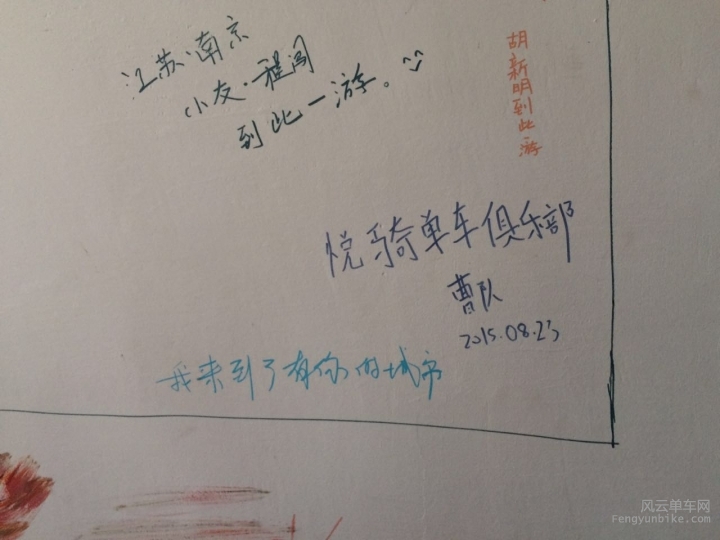 江苏·南京
小友·程闯
到此一游。^_^
胡新明到此游
悦骑单车俱乐部
曹队
2015.08.23
我来到了有你的城市
风云单车网
Fengyunbike.com